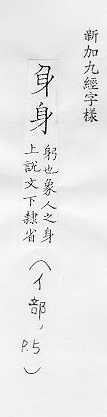 新加九經字樣
𨈟身
躬也象人之身
上說文下隸省
(亻部，P.5)